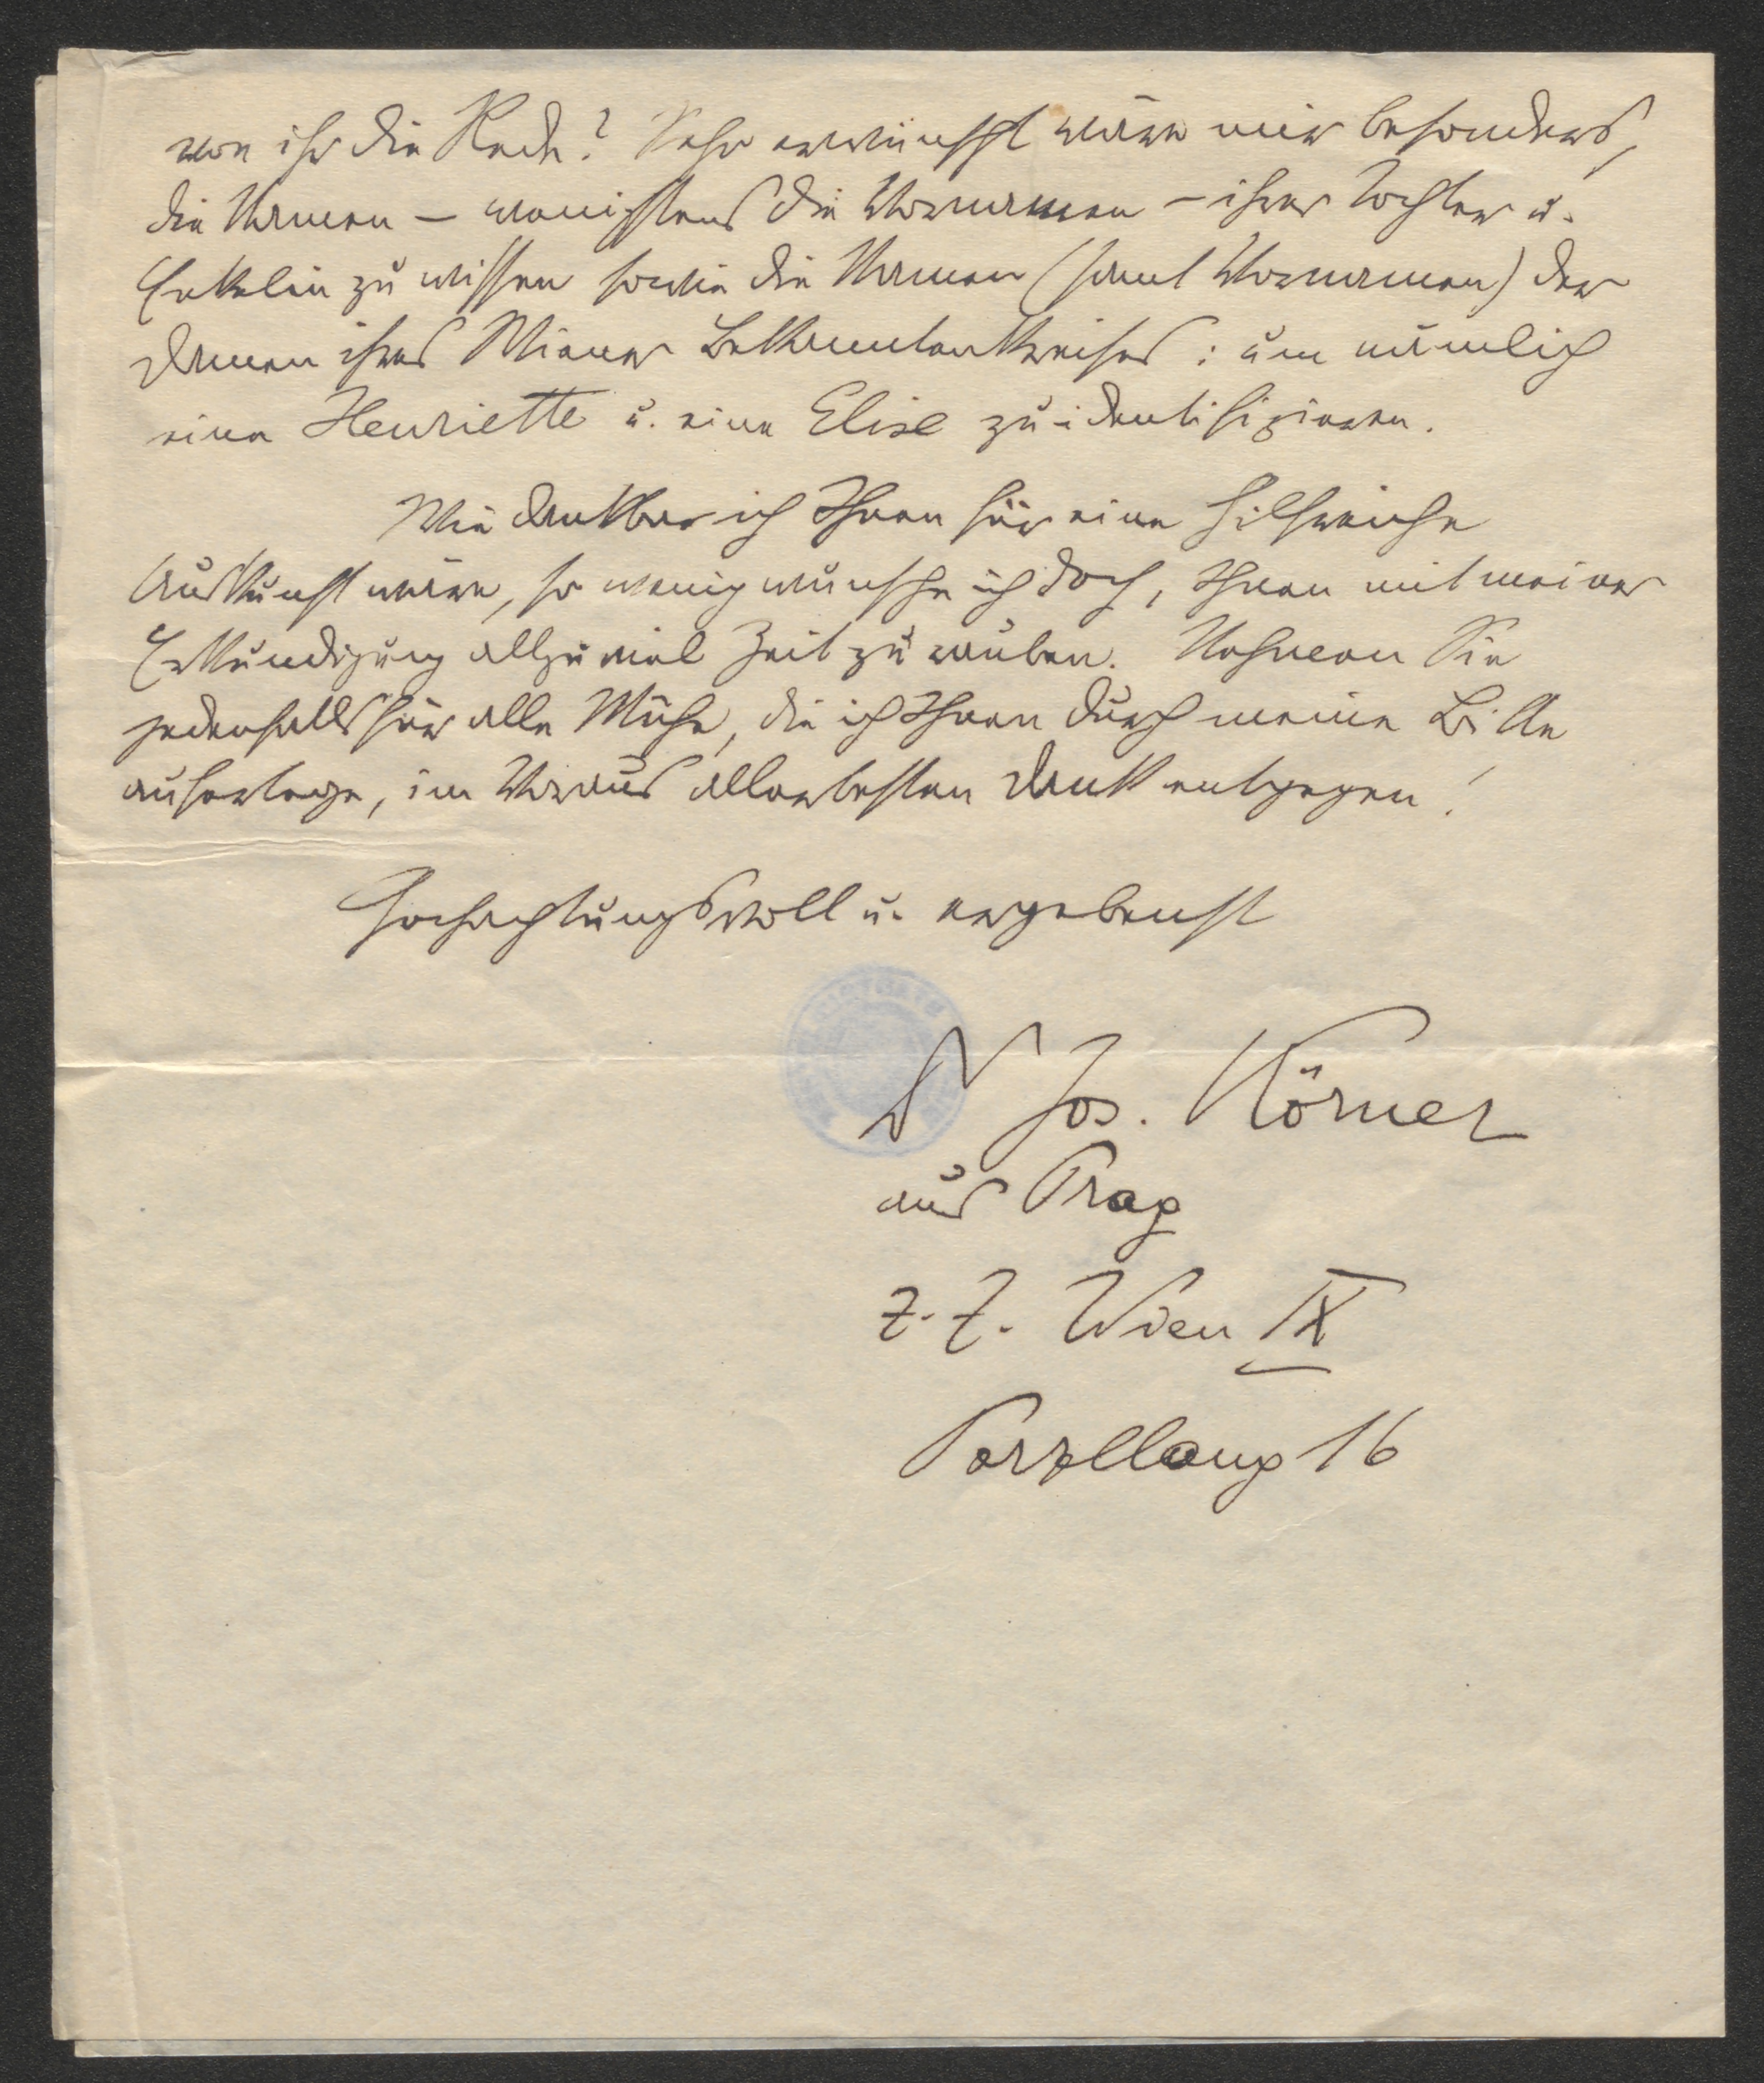 von ihr die Rede? Sehr erwünscht wäre mir besonders,
die Namen – wenigstens die Vornamen – ihrer Tochter u.
Enkelin zu wissen sowie die Namen (samt Vornamen) der
Damen ihres Wiener Bekanntenkreises: um nämlich
eine Henriette u. eine Elise zu identifizieren.
Wie dankbar ich Ihnen für eine hilfreiche
Auskunft wäre, so wenig wünsche ich doch, Ihnen mit meiner
Erkundigung allzu viel Zeit zu rauben. Nehmen Sie
jedenfalls für alle Mühe, die ich Ihnen durch meine Bitte
auferlege, im Voraus allerbesten Dank entgegen!
Hochachtungsvoll u. ergebenst
Dr Jos. Körner
aus Prag
z. Z. Wien IX
Porzellang 16